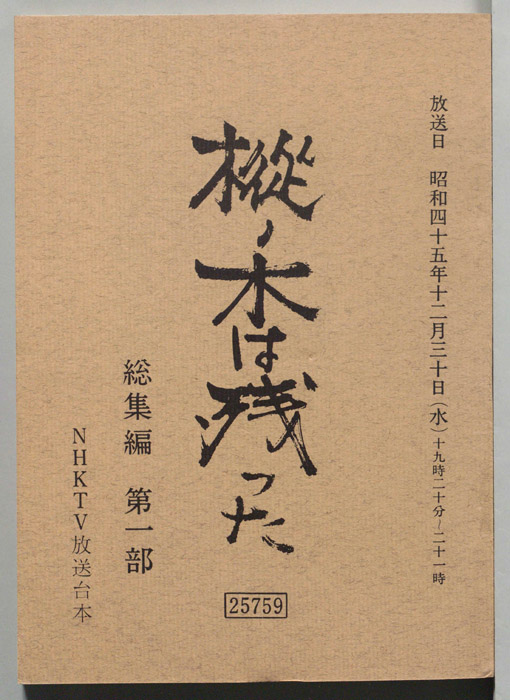 放送日　昭和四十五年十二月三十日（水）十九時二十分～二十一時
樅ノ木は残った
総集編　第一部
NHKTV放送台本
25759